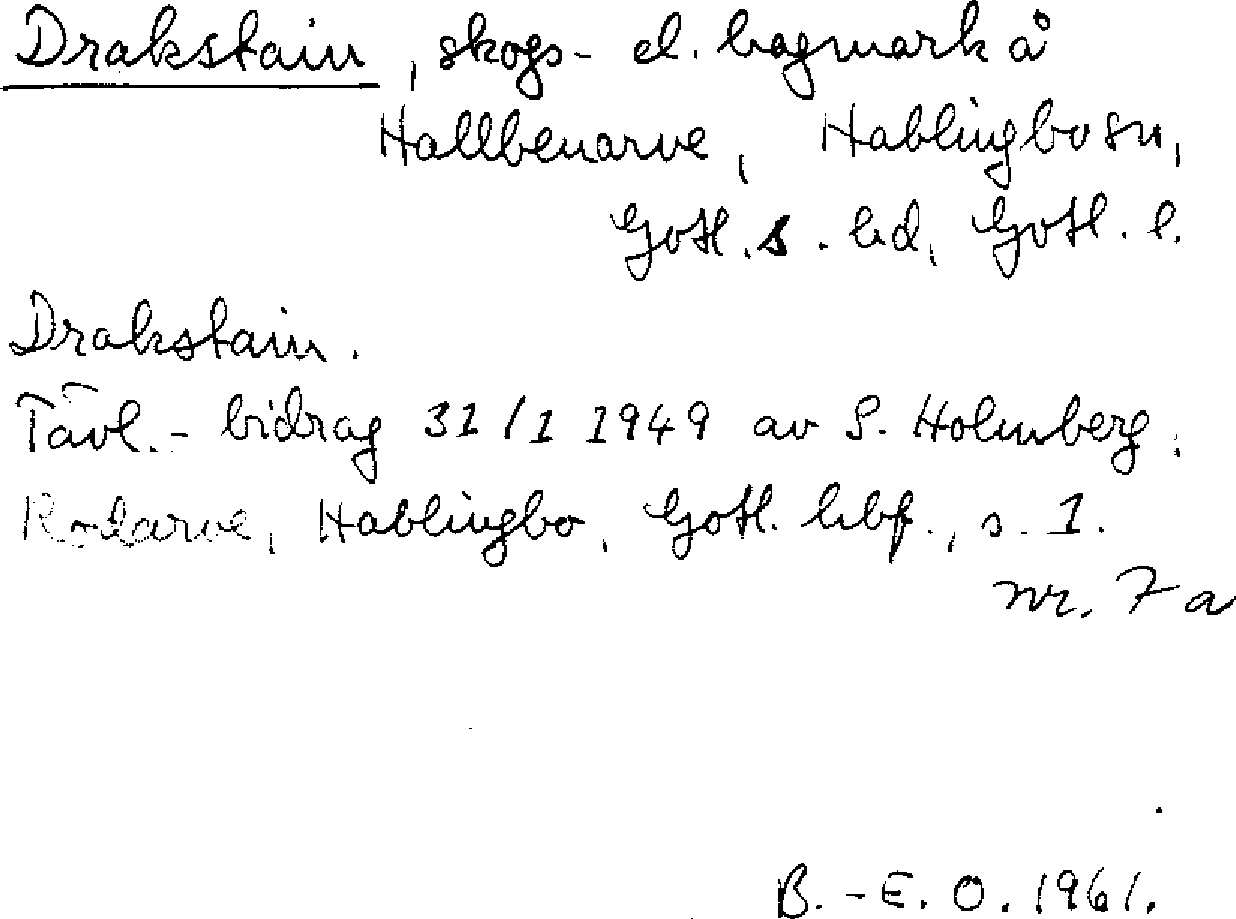 Drakstain, skogs- el. hagmark å
Hallbenarve, Hablingbo sn,
Gotl. s. hd, Gotl. l.
Drakstain.
Tävl.-bidrag 31/1 1949 av S. Holmberg,
Rodarve, Hablingbo, Gotl. hbf., s. 1.
nr. 7 a
B.-E. O. 1961.